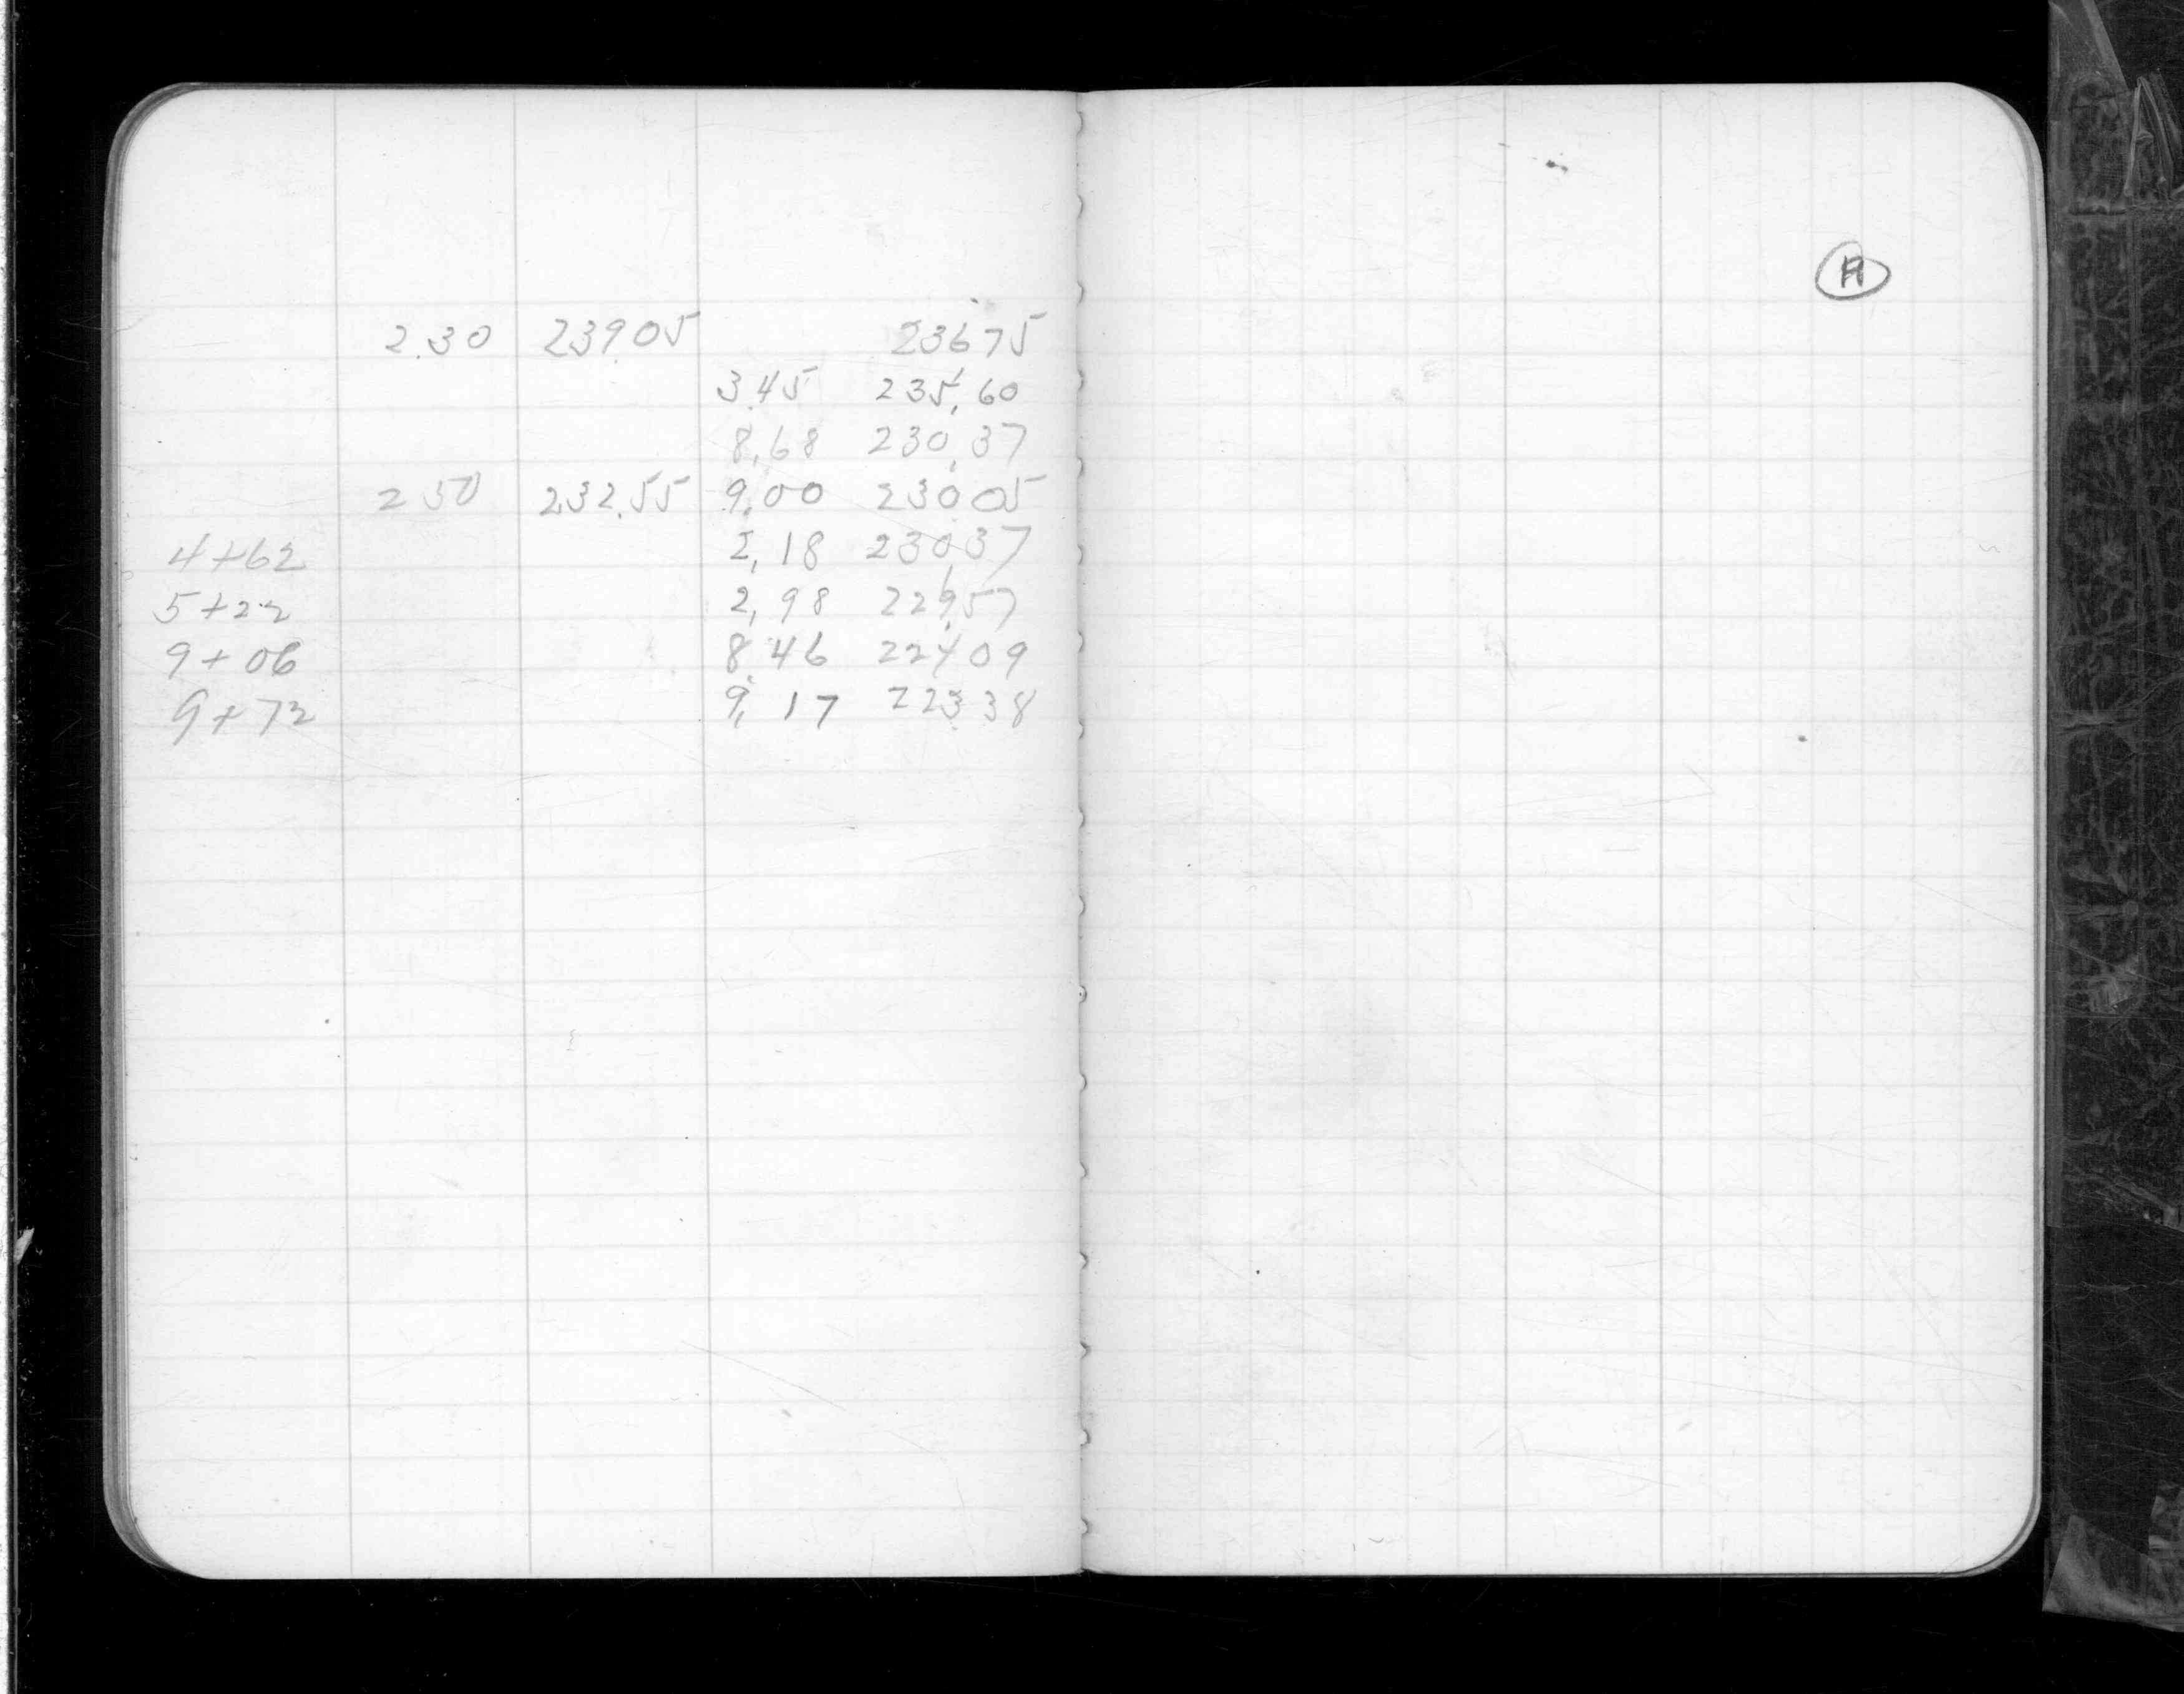 2.30 239.05 236 75
3.45 235.60
8.68 230.37
2 50 232.55 9.00 230 05
4+62 2.18 230 37
5+22 2.98 229.57
9+06 8.46 224 09
9+72 9.17 223 38